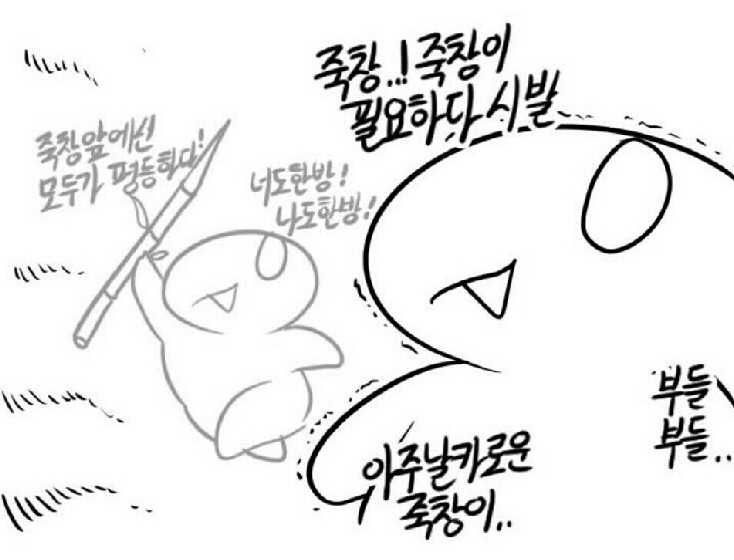 죽창..! 죽창이
필요하다 시발
죽창앞에선
모두가 평등하다!
너도한방!
나도한방!
부들
부들..
아주날카로운
죽창이..